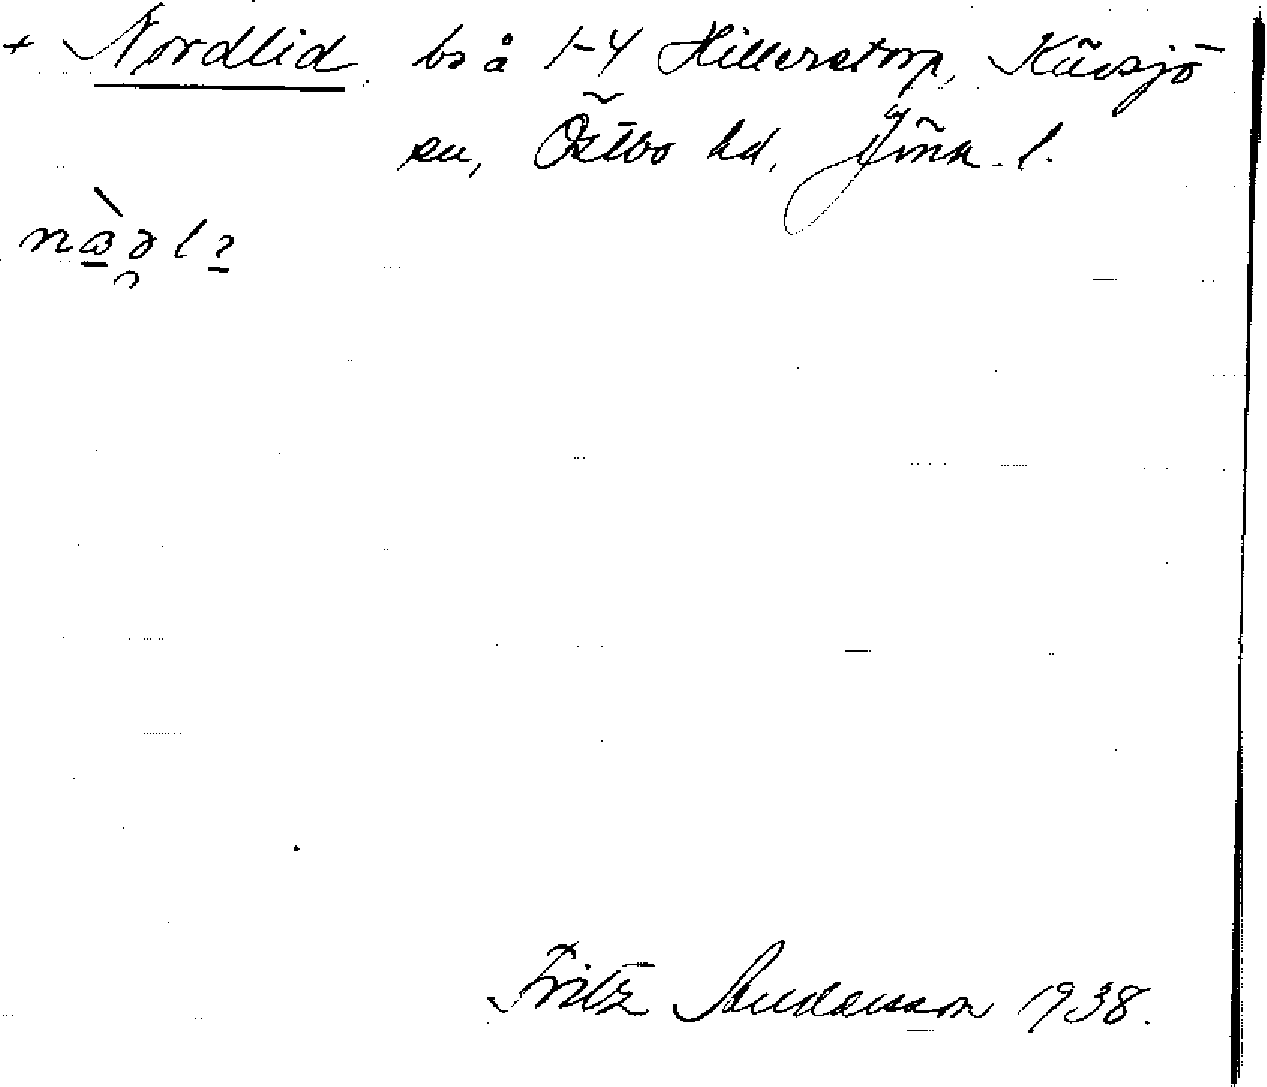 + Nordlid bs å 1-4 Hillerstorp, Kävsjö
sn, Östbo hd, Jönk. l.
Fritz Andersson 1938.